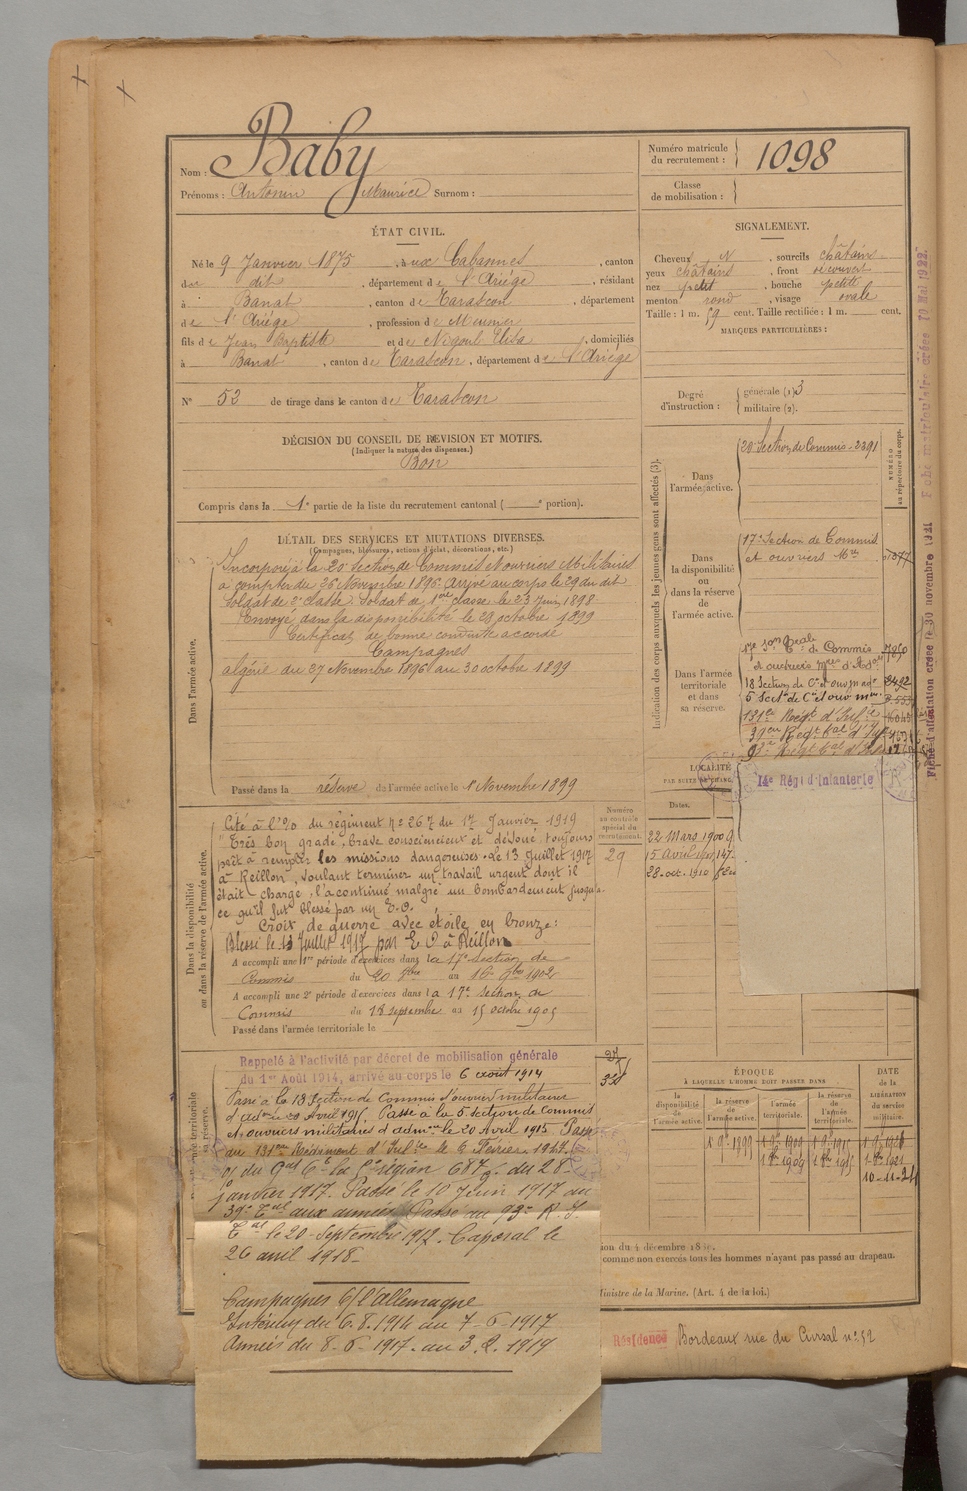 Nom : Baby
Prénoms : Antonin Maurice Surnom :
Numéro matricule du recrutement : 1098
Classe de mobilisation :
ÉTAT CIVIL.
Né le 9 Janvier 1875, à aux Cabannes, canton
du dit, département de l'Ariège, résidant
à Banat, canton de Tarascon, département
de l'Ariège, profession de Meunier
fils de Jean Baptiste et de Nigoul Elisa, domiciliés
à Banat, canton de Tarascon, département de l'Ariège
N° 52 de tirage dans le canton de Tarascon
SIGNALEMENT.
Cheveux N, sourcils châtains
yeux châtains, front découvert
nez petit, bouche petite
menton rond, visage ovale
Taille : 1 m. 59 cent. Taille rectifiée : 1 m. cent.
MARQUES PARTICULIÈRES :
Degré d'instruction : générale (1) 3
militaire (2).
DÉCISION DU CONSEIL DE REVISION ET MOTIFS.
(Indiquer la nature des dispenses.)
Bon
Compris dans la 1e partie de la liste du recrutement cantonal ( e portion).
DÉTAIL DES SERVICES ET MUTATIONS DIVERSES.
(Campagnes, blessures, actions d'éclat, décorations, etc.)
Dans l'armée active.
Incorporé à la 20e Section de Commis et ouvriers Militaires
à compter du 26 Novembre 1896. Arrivé au corps le 29 du dit
Soldat de 2e classe. Soldat de 1ère classe le 23 Juin 1898
Envoyé dans la disponibilité le 28 octobre 1899
Certificat de bonne conduite accordé
Campagnes
algérie du 27 Novembre 1896 au 30 octobre 1899
Passé dans la réserve de l'armée active le 1er Novembre 1899
Dans la disponibilité ou dans la réserve de l'armée active.
Cité à l'%0 du régiment n° 267 du 17 Janvier 1919
"Très bon gradé, brave consciencieux et dévoué toujours
prêt à remplir les missions dangereuses. Le 13 Juillet 1917
à Reillon, voulant terminer un travail urgent dont il
était chargé, l'a continué malgré un bombardement jusqu'à
ce qu'il fut blessé par un E.O.
Croix de guerre avec étoile en bronze :
Blessé le 13 Juillet 1917 par E O à Reillon
A accompli une 1re période d'exercices dans la 17e Section de
Commis du 20 8bre au 16 9bre 1902
A accompli une 2e période d'exercices dans la 17e section de
Commis du 18 septembre au 15 octobre 1905
Passé dans l'armée territoriale le
Numéro au contrôle spécial du recrutement.
29
Rappelé à l'activité par décret de mobilisation générale
du 1er Août 1914, arrivé au corps le 6 août 1914
Passé à la 18 Section de Commis et ouvriers militaires
Passé à la 5 section de commis
et ouvriers militaires d'admon le 20 Avril 1915 Passé
au 131eme Régiment d'Infie le 6 Février 1917.
du Gal Ct la 5e région 687 du 28
janvier 1917. Passé le 10 Juin 1917 au
39e Tal aux armées Passé au 93e R. I.
Tal le 20 Septembre 1917. Caporal le
26 avril 1918
Campagnes c/ l'allemagne
Intérieur du 6.8.1914 au 7-6-1917
Armées du 8-6-1917 au 3.2.1919
Indication des corps auxquels les jeunes gens sont affectés (3).
NUMÉRO au répertoire du corps.
Dans l'armée active.
20e Section de Commis 2391
Dans la disponibilité ou dans la réserve de l'armée active.
17e Section de Commis
et ouvriers Mres
Dans l'armée territoriale et dans sa réserve.
de Commis
et ouvriers
18 Section de Cis et ouv m adon
5 Sectn de Cis et ouv mres
131e Régt d'Infie
39eme Régt tal d'Infie
93e Régt tal d'Infie
14e Régt d'Infanterie
LOCALITÉ
Dates.
22 Mars 1900
15 Avril
28 oct. 1910
ÉPOQUE
À LAQUELLE L'HOMME DOIT PASSER DANS
la disponibilité de l'armée active.
la réserve de l'armée active.
l'armée territoriale.
la réserve de l'armée territoriale.
DATE de la LIBÉRATION du service militaire.
10-11-24
comme non exercés tous les hommes n'ayant pas passé au drapeau.
Ministre de la Marine. (Art. 4 de la loi.)
Résidence Bordeaux rue du Cursal n° 52
Fiche d'affectation créée le 30 novembre 1921 Fiche matriculaire créée 10 Mai 1922.